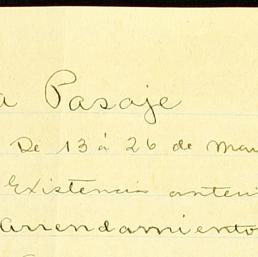 a Pasaje
De 13 á 26 de Mar
Existencia anteri
arrendamiento